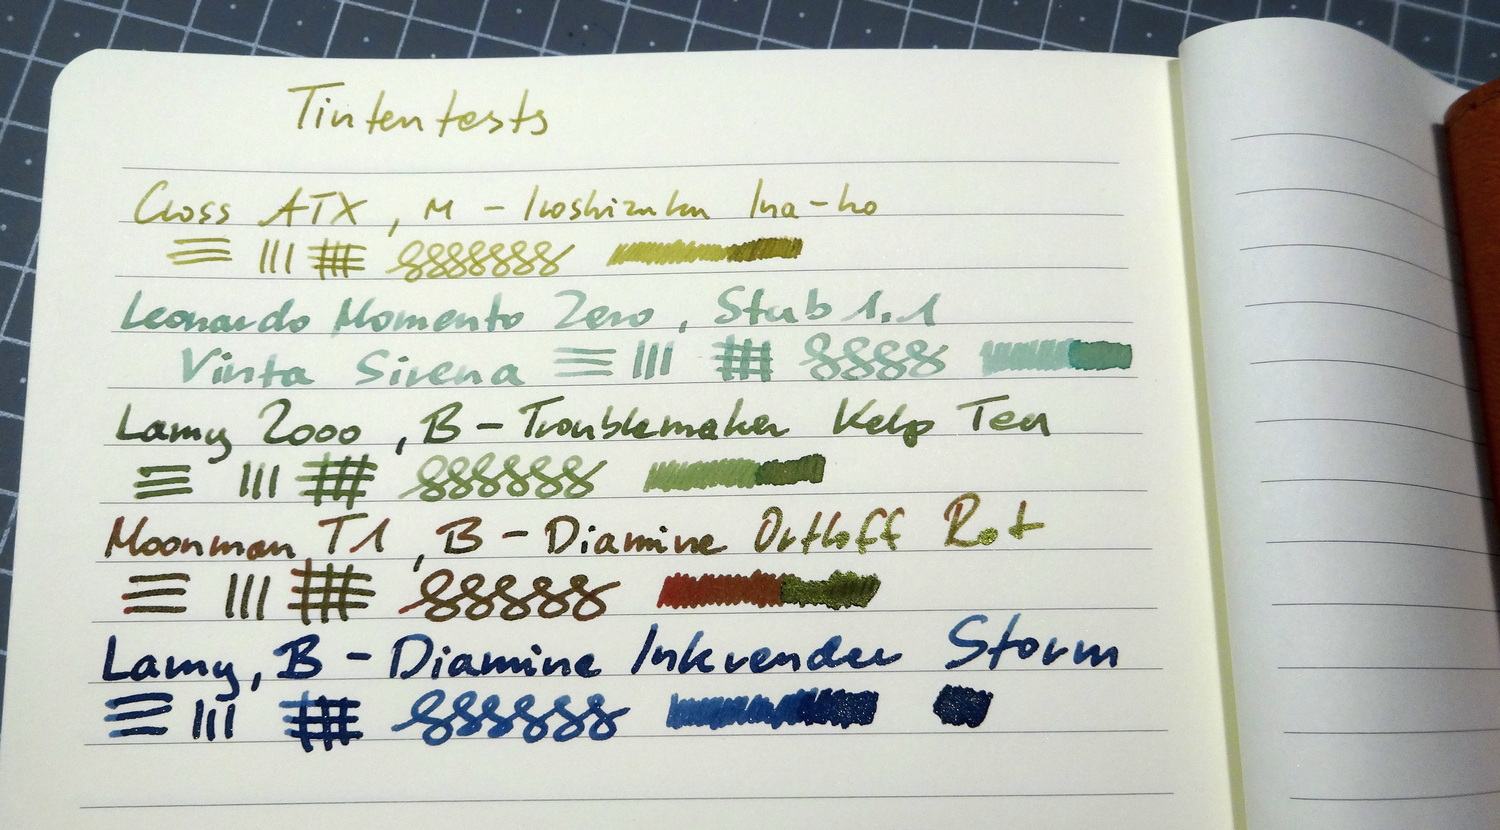 Tintentests
Cross ATX, M - Iroshizuku Ina-ho
Leonardo Momento Zero, Stub 1.1
Vinta Sirena
Lamy 2000, B - Troublemaker Kelp Tea
Moonman T1, B - Diamine Ortloff Rot
Lamy, B - Diamine Inkvender Storm